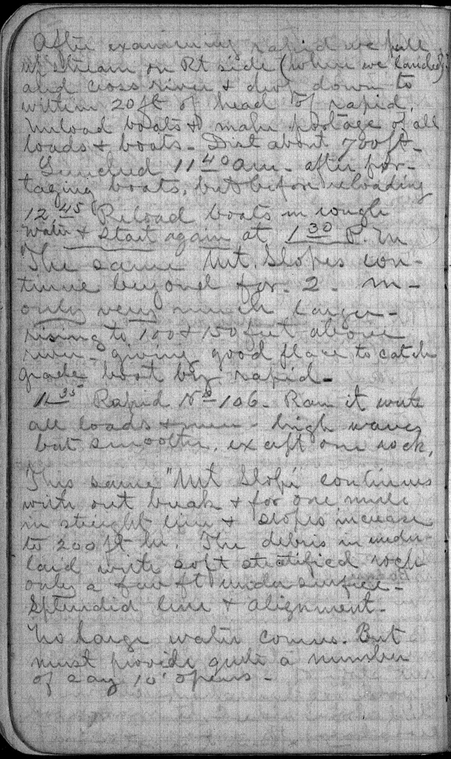 After examining rapid we pull
up stream on Rt side (where we landed)
and cross river & drop down to
within 20 ft of head of rapid.
Unload boats & make portage of all
loads & boats. Dist about 700 ft.
Lunched 11 40 am. after por-
taging boats, but before reloading
12.45 Reload boats in rough
water & start again at 1 30 P.M
The same Mt Slopes con-
tinue beyond for 2 m-
only very much larger-
rising to 100 & 150 feet above
river - giving good place to catch
grade, but big rapid -
1 35 Rapid No 106. Ran it with
all loads & men - high waves
but smooth, except one rock.
This same "Mt Slope" continues
with out break & for one mile
in straight line & slopes increase
to 200 ft hi. The debris is under-
laid with soft stratified rock
only a few ft under surface -
Splendid line & alignment -
No large water comes. But
must provide quite a number
of say 10' opens -